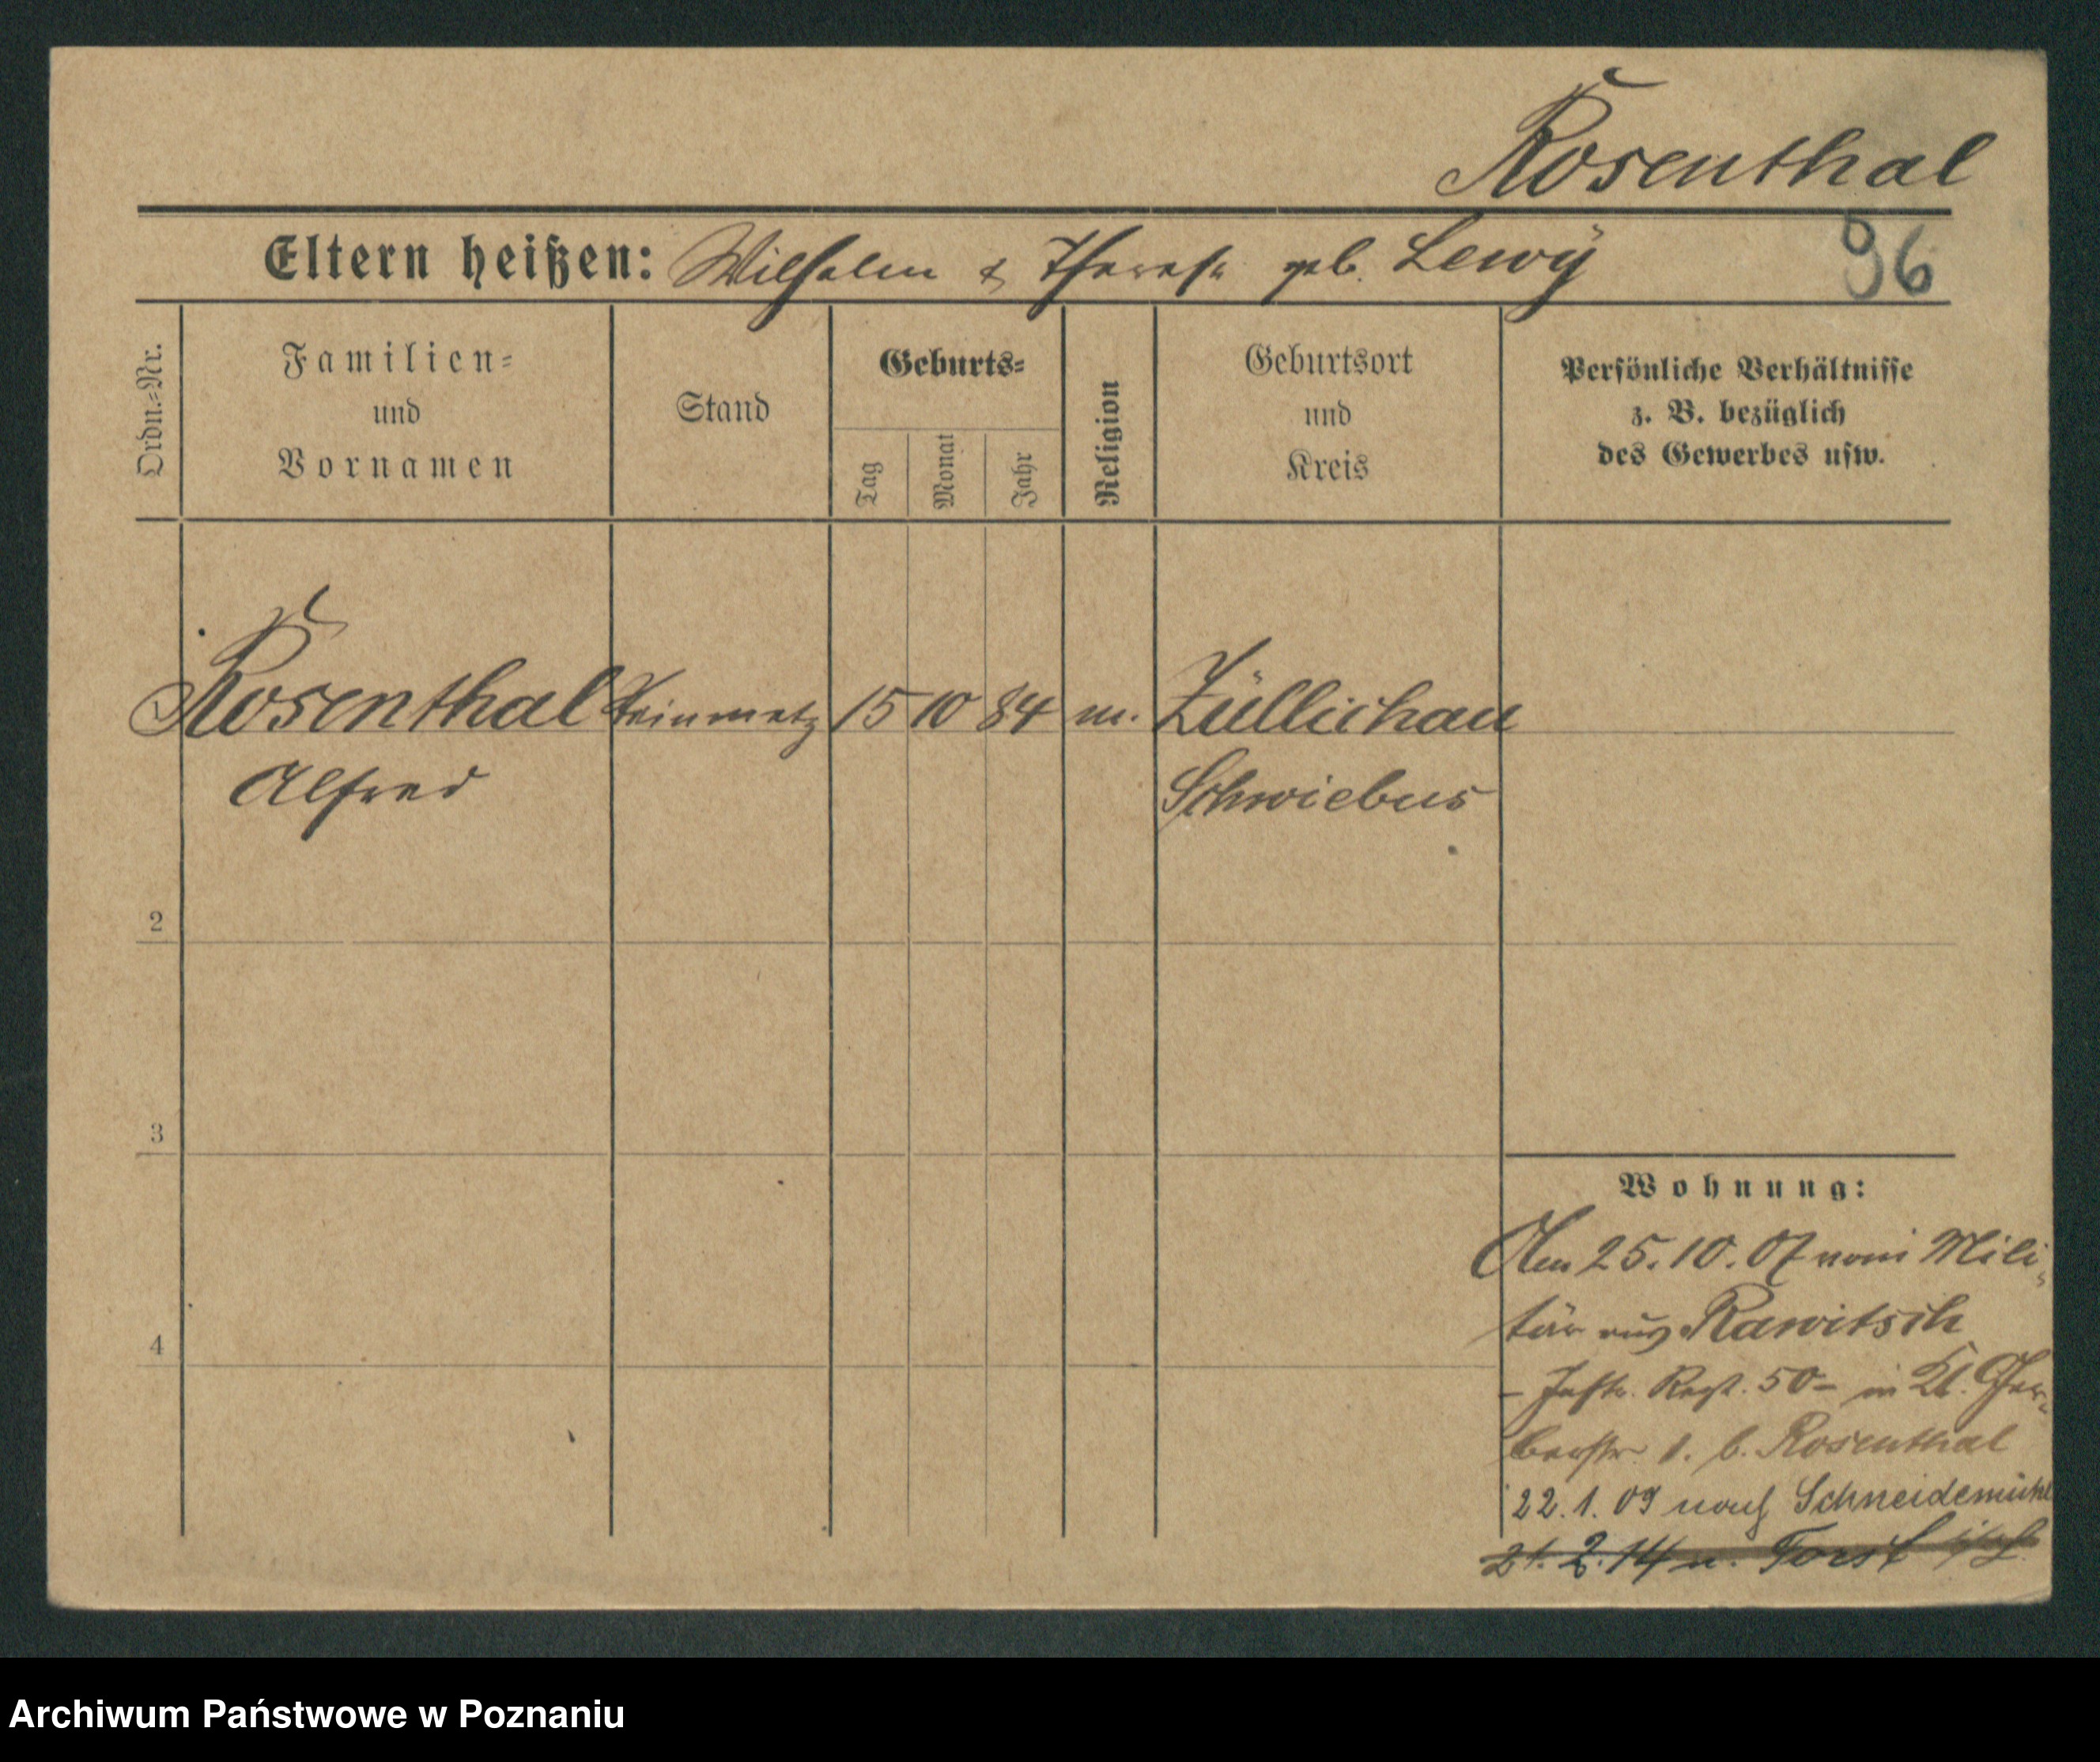 Rosenthal
Eltern heißen: Wilhelm & Therese geb. Lewÿ
96
Ordn.-Nr.
Familien-
und
Vornamen
Stand
Geburts-
Tag
Monat
Jahr
Religion
Geburtsort
und
Kreis
Persönliche Verhältnisse
z. B. bezüglich
des Gewerbes usw.
1 Rosenthal Steinmetz 15 10 84 m. Züllichau
Alfred Schwiebus
2
3
4
Wohnung:
Am 25.10.07 vom Mili-
tär aus Rawitsch
- Inftr. Regt. 50 - in Kl. Ger-
berstr. 1. b. Rosenthal
22.1.09 nach Schneidemühl
21.2.14 n. Forst
Archiwum Państwowe w Poznaniu